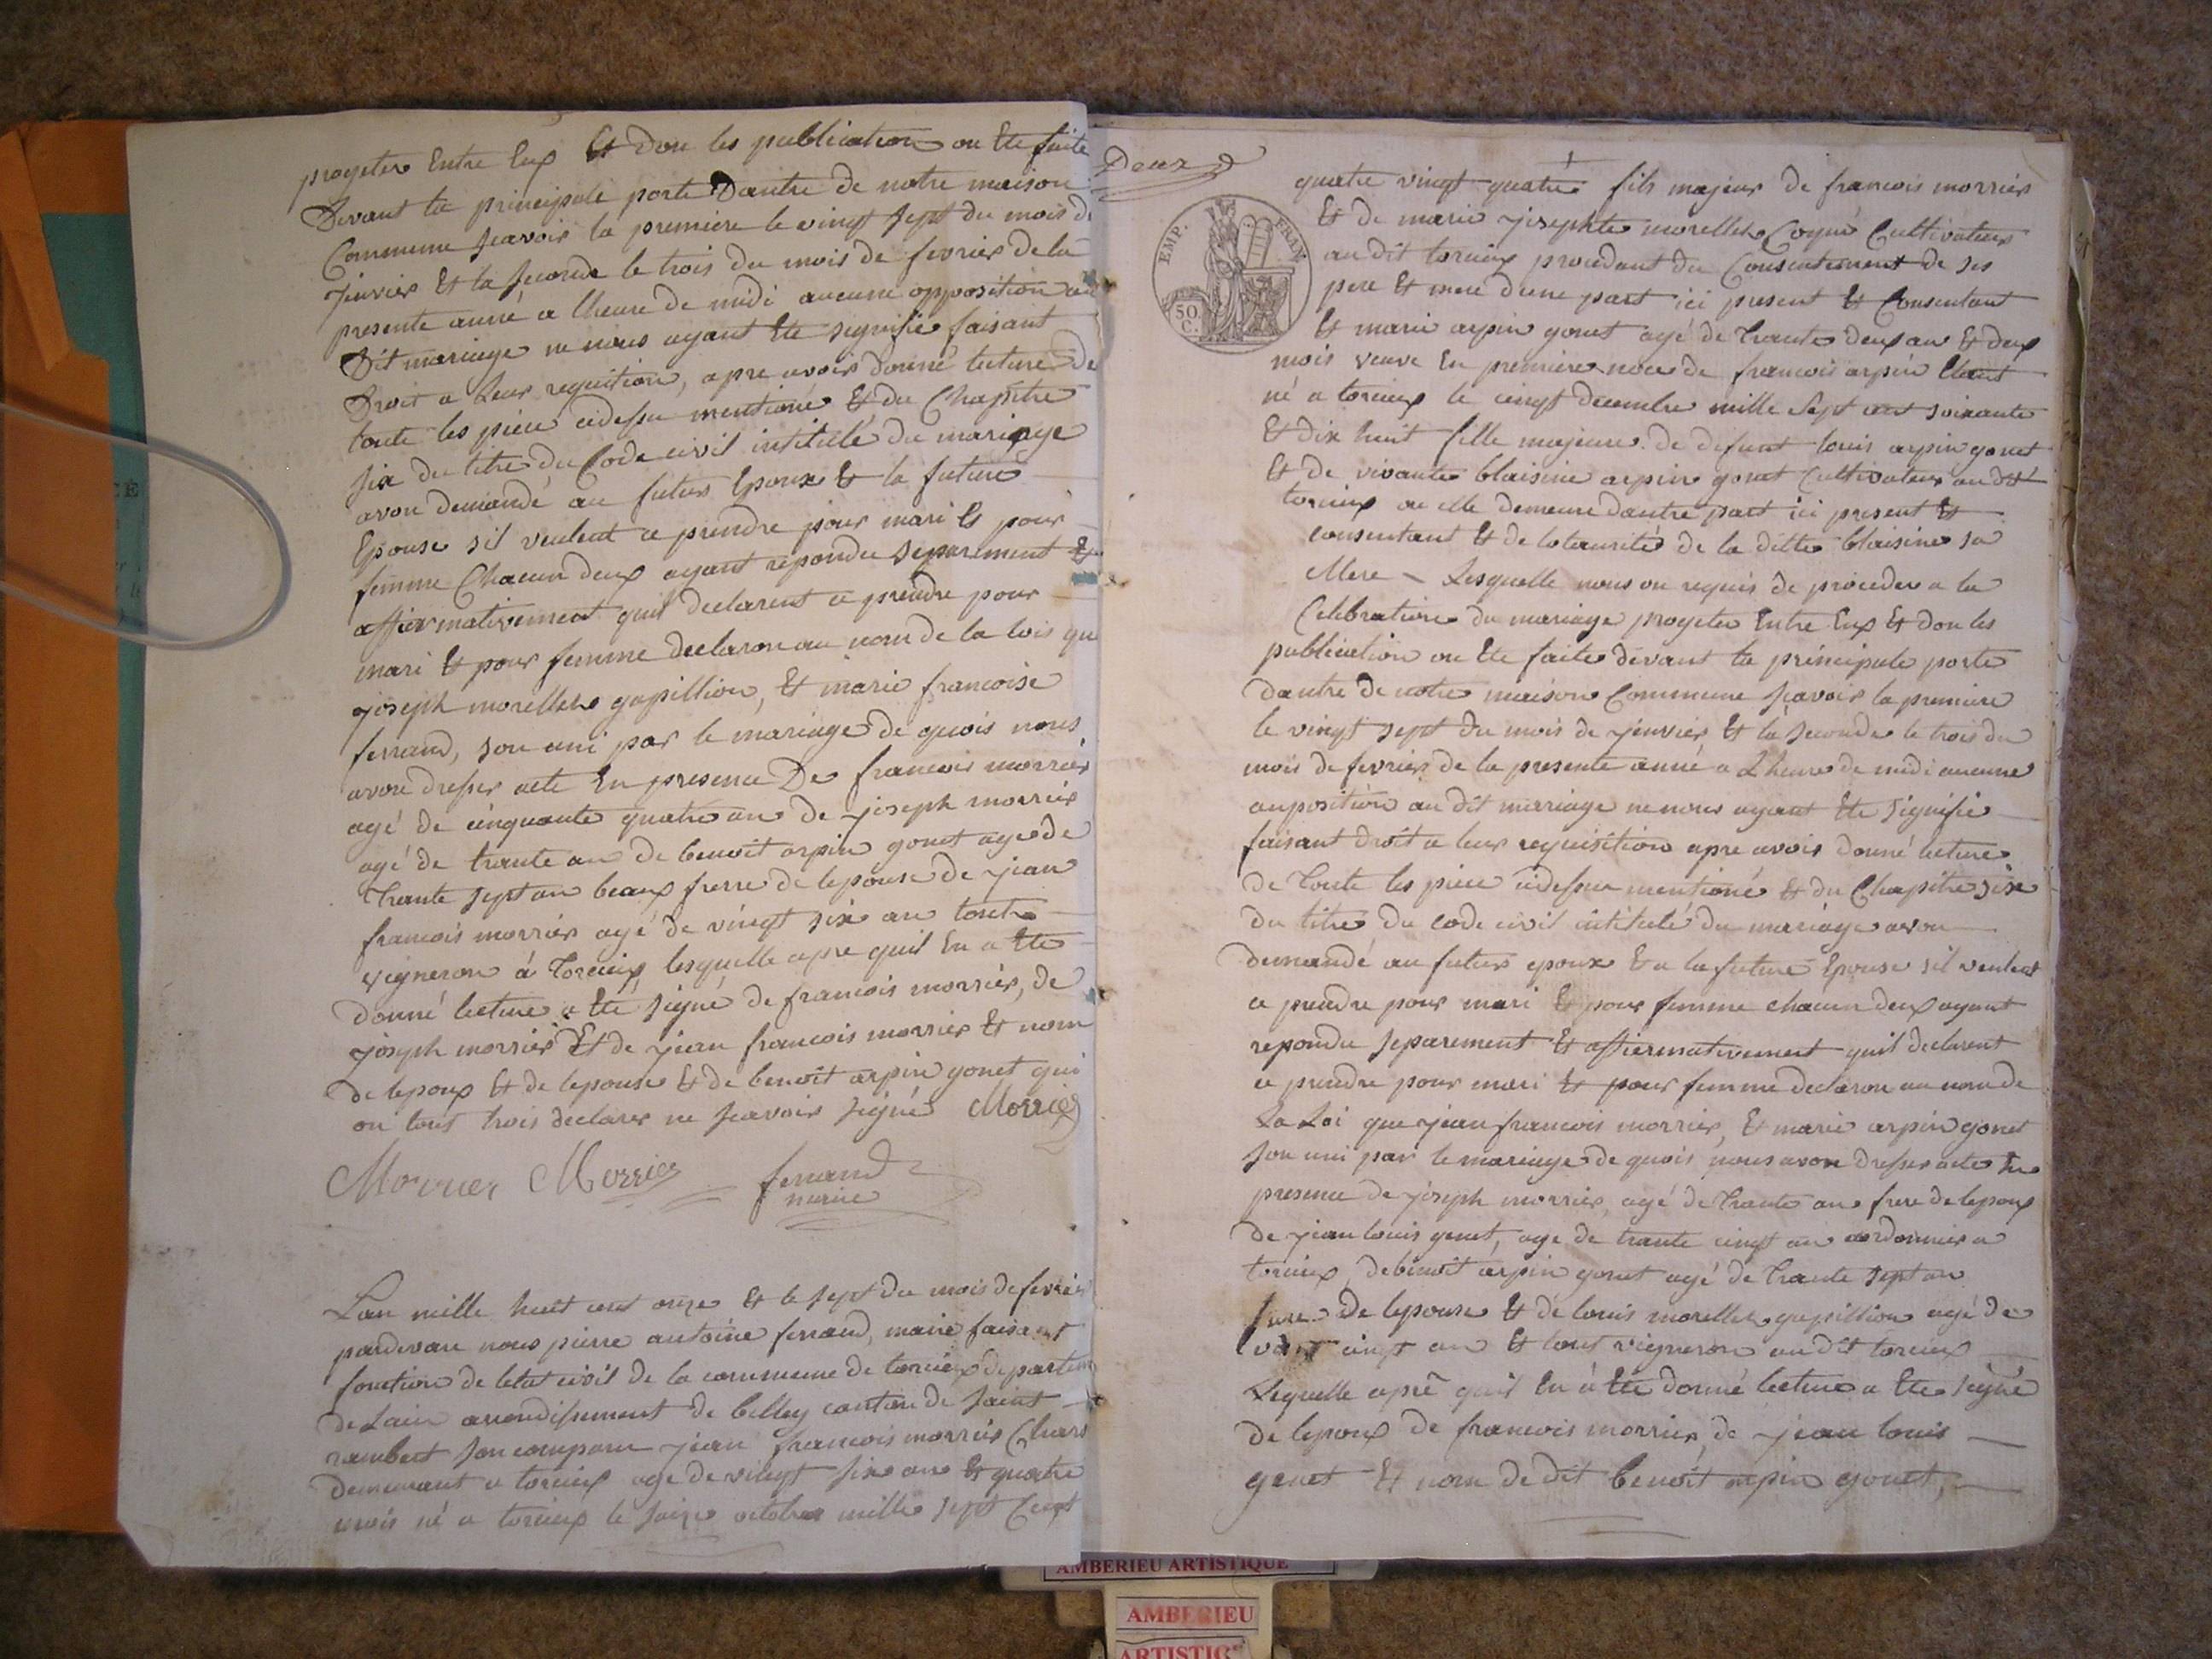 progeter Entre Eux Et don les publication on Ete faite
Devant la principale porte Dantré de notre maison
Commune scavoir la premiere le vingt sept du mois de
jenvier Et la seconde le trois du mois de fevrier de la
presente anné a lheure de midi aucune opposition au
Dit mariage ne nous ayant Ete signifie faisant
Droit a leur requition, apre avoir donné lecture de
toute les piece cidessu mentioné Et du Chapitre
six du titre du Code civil intitulé du mariage
avon demandé au futur Epoux Et la future
Epouse sil veulent ce prendre pour mari Et pour
femme Chacun deux ayant repondu separement Et
affirmativement quil declarent ce prendre pour
mari Et pour femme declaron au nom de la lois que
joseph morellet gopillion, Et marie francoise
ferrand, son uni par le mariage de quois nous
avon dresser acte En presence De francois morrier
agé de cinquante quatre an de joseph morrier
agé de trante an de benoit arpin gonet age de
trante sept an beaux frerre de lepouse de jean
francois morrier agé de vingt six an touts
vigneron à torcieux lesquelle apre quil En a Ete
donné lecture a Eté signé de francois morrier, de
joseph morrier Et de jean francois morrier Et nom
de lepoux Et de lepouse Et de benoit arpin gonet qui
on tout trois declarer ne scavoir signé Morrier
Morrier Morrier ferrand
maire
Lan mille huit cent onze Et le sept du mois de fevrier
pardevan nous pierre antoine ferrand, maire faisant
fonction de letat civil de la commune de torcieux departem
de Lain arrondissement de belley canton de saint
rambert son comparu jean francois morrier Chars
demeurant a torcieux age de vingt six an Et quatre
mois né a torcieux le saize octobre mille sept Cent
Deux
EMP. FRAN.
50 C.
quatre vingt quatre fils majeur de francois morrier
Et de marie josephte morellet Coyné Cultivateur
au dit torcieux procedant du Consentement de ses
pere Et mere dune part ici present Et Consentant
Et marie arpin gonet agé de trante deux an Et deux
mois veuve En premiere noce de francois arpin Etant
né a torcieux le vingt decembre mille sept cent soixante
Et dix huit fille majeure de defunt louis arpin gonet
Et de vivante blaisine arpin gonet Cultivateur au dit
torcieux ou elle demeure dautre part ici present Et
consentant Et de lotaurité de la ditte blaisine sa
Mere Lesquelle nous on requis de proceder a la
Celebration du mariage progeter Entre Eux Et don les
publication on Ete faite devant la principale porte
dantre de notre maison Commune scavoir la premiere
le vingt sept du mois de jenvier Et la seconde le trois du
mois de fevrier de la presente anné a Lheure de midi aucune
auposition au dit mariage ne nous ayant Ete signifie
faisant droit a leur requisition apre avoir donné lecture
de toute les piece cidessu mentioné Et du Chapitre six
du titre du code civil intitulé du mariage avon
demandé au futur epoux Et a la future Epouse sil veulent
ce prendre pour mari Et pour femme chacun deux ayant
repondu separement Et affiermativement quil declarent
ce prendre pour mari Et pour femme declaron au nom de
La Loi que jean francois morrier, Et marie arpin gonet
son uni par le mariage de quois nous avon dresser acte En
presence de joseph morrier, agé de trante an frere de lepoux
de jean louis genet, age de trante cinqt an cordonnier a
torcieux, de benoit arpin gonet agé de trante sept an
frere de lepouse Et de louis morellet gupillion agé de
vint cinqt an Et tout vigneron au dit torcieux
Lequelle apré quil En à Eté donné lecture a Ete signé
de lepoux de francois morrier, de jean louis
genet Et nom de dit benoit arpin gonet,
AMBERIEU ARTISTIQUE
AMBERIEU
ARTISTIC